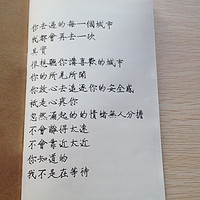 你去過的每一個城市
我都會再去一次
其實
很想聽你講喜歡的城市
你的所見所聞
你放心去追逐你的安全感
祇是心疼你
忽然涌起的的情緒無人分憐
不會離得太遠
不會靠近太近
你知道的
我不是在等待